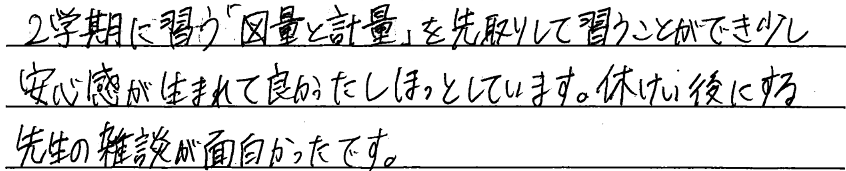 2学期に習う「図量と計量」を先取りして習うことができ少し
安心感が生まれて良かったしほっとしています。休けい後にする
先生の雑談が面白かったです。